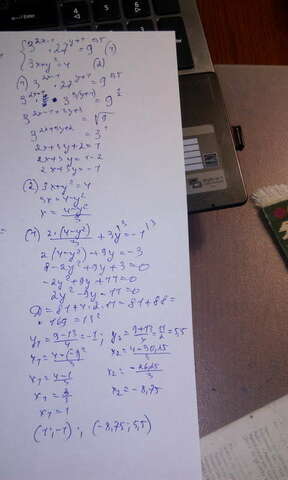 { 3^(2x-1) · 27^(y+1) = 9^(0,5) (1)
3x+y² = 4 (2)
(1) 3^(2x-1) · 27^(y+1) = 9^(0,5)
3^(2x-1) · 3^(3(y+1)) = 9^(1/2)
3^(2x-1+3y+3) = √9
3^(2x+3y+2) = 3^1
2x+3y+2=1
2x+3y=1-2
2x+3y=-1
(2) 3x+y²=4
3x=4-y²
x = (4-y²)/3
(1) 2·(4-y²)/3 + 3y = -1 |·3
2(4-y²)+9y=-3
8-2y²+9y+3=0
-2y²+9y+11=0
2y²-9y-11=0
D=81+4·2·11=81+88=
=169=13²
y₁=(9-13)/4=-1; y₂=(9+13)/4=11/2=5,5
x₁=(4-(-1)²)/3 x₂=(4-30,25)/3
x₁=(4-1)/3 x₂=-26,25/3
x₁=3/3 x₂=-8,75
x₁=1
(1;-1); (-8,75; 5,5)